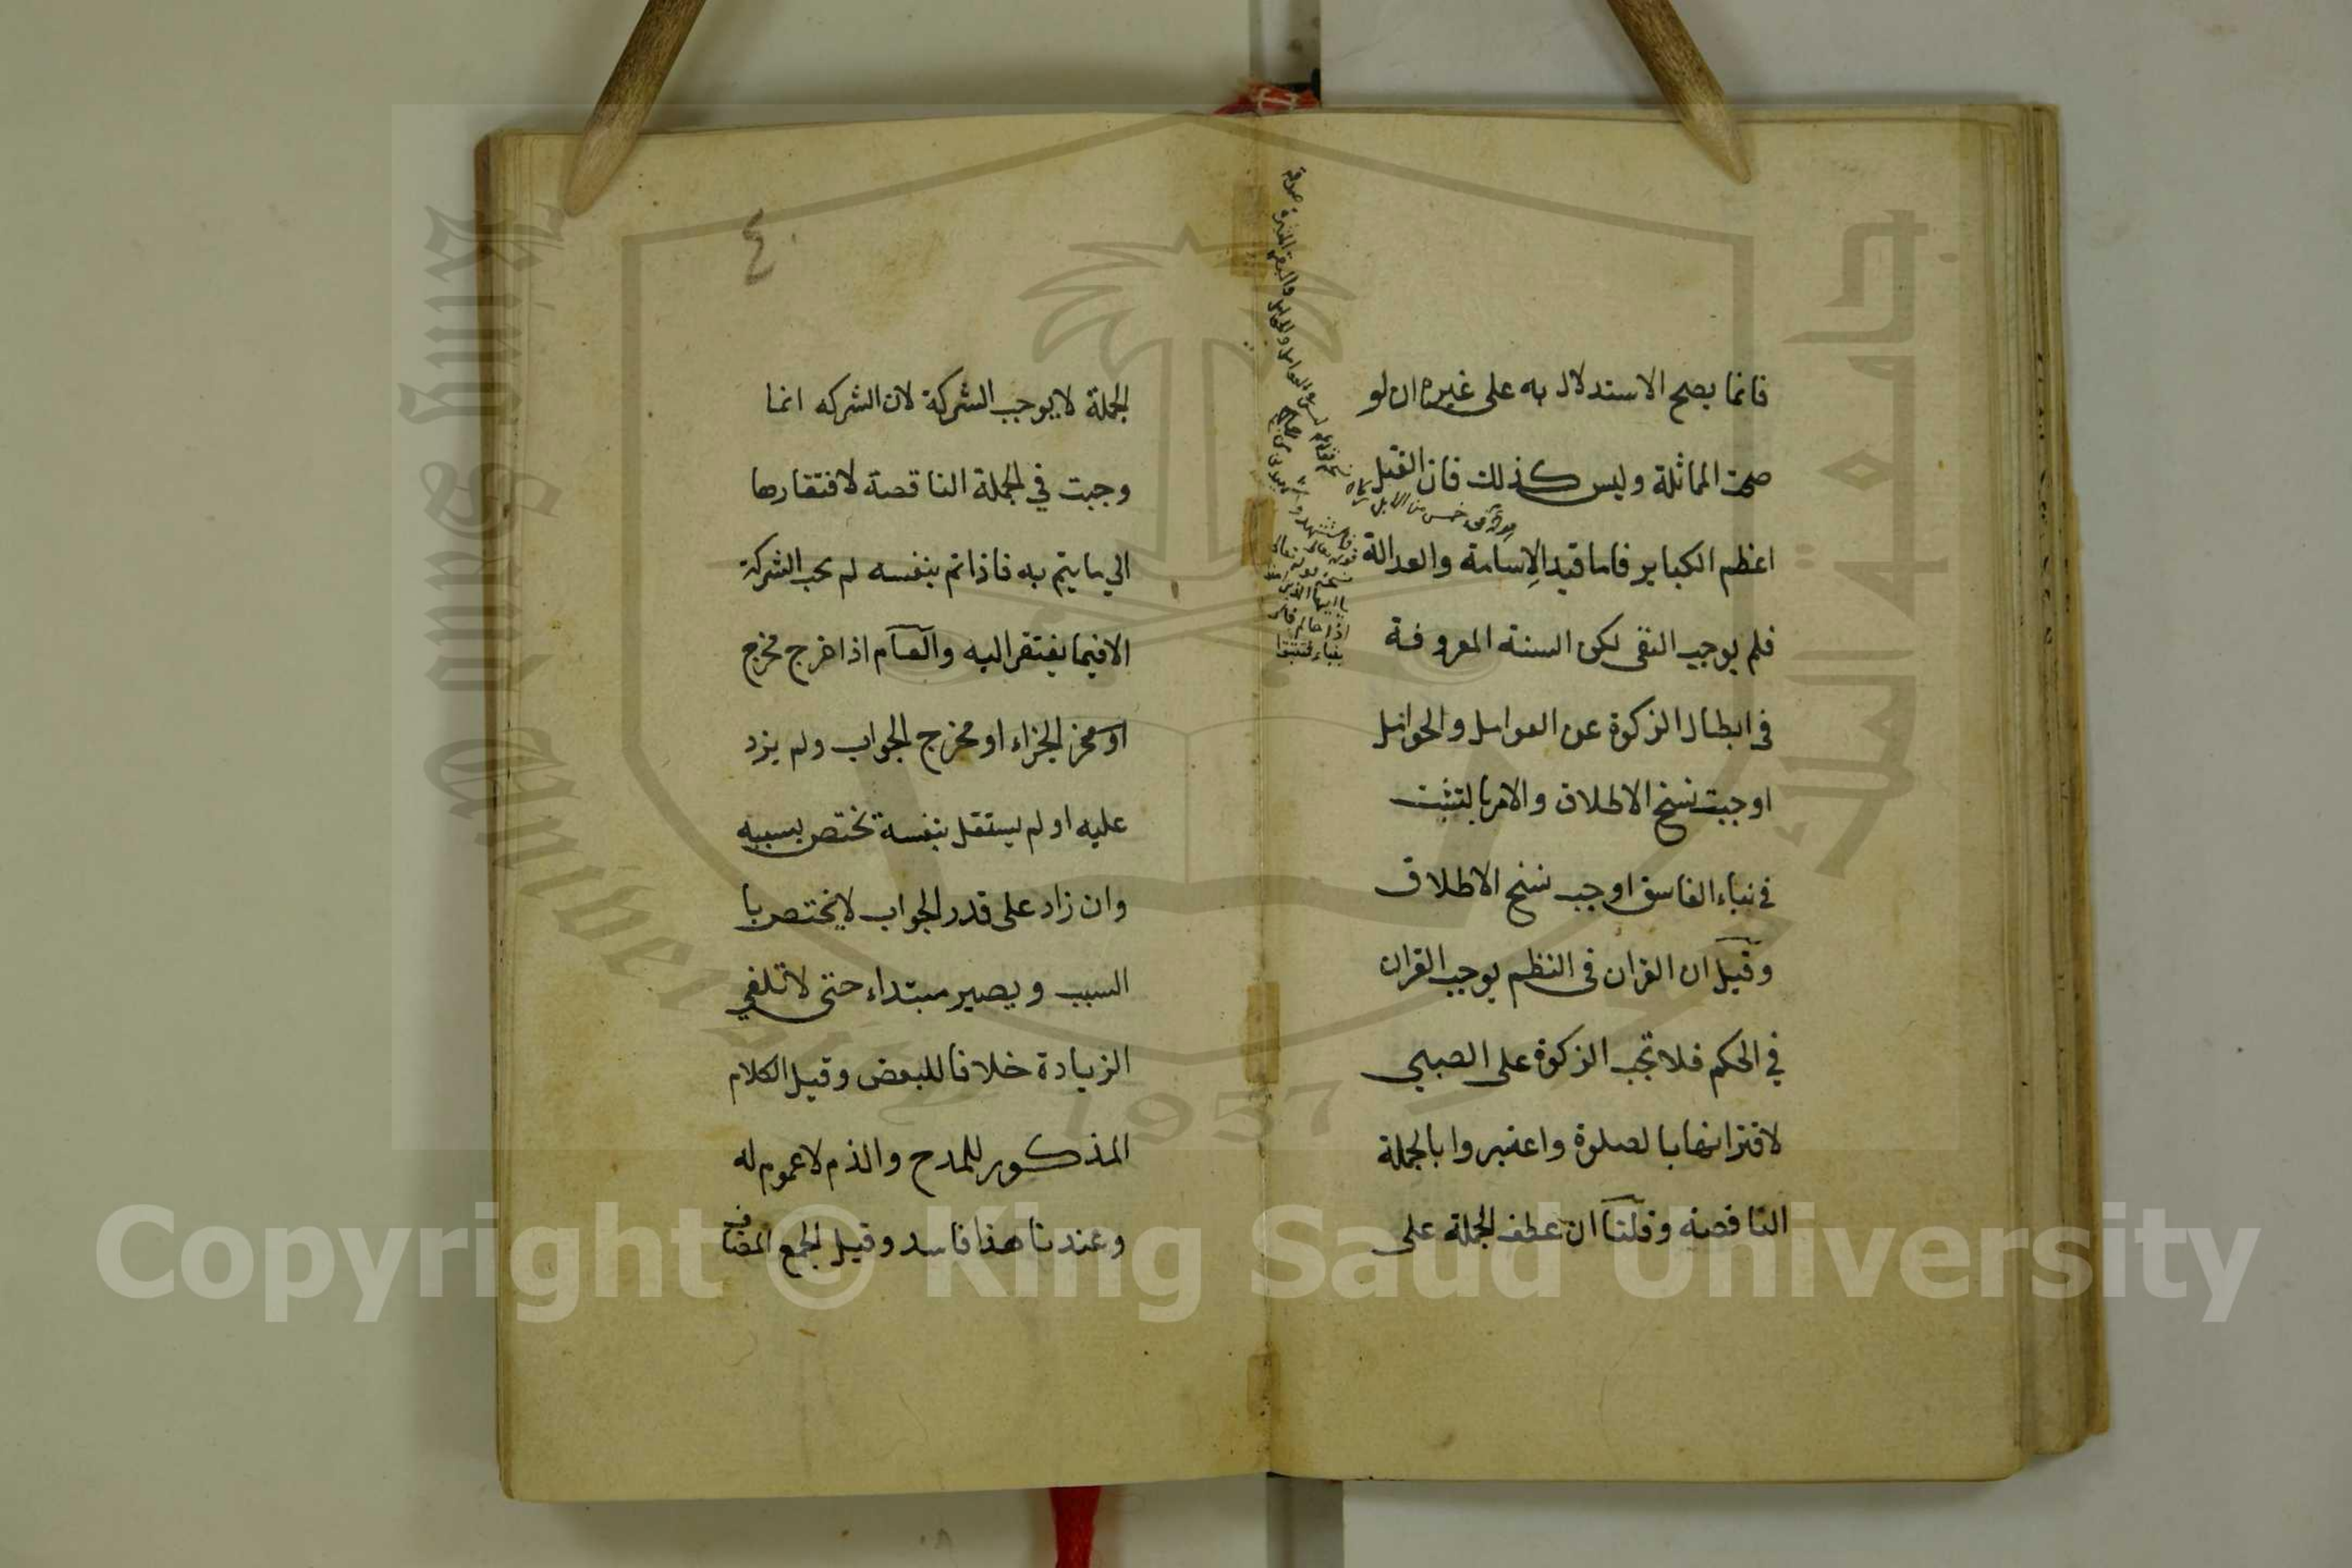 فانما يصح الاستدلال به على غيره ان لو
صحت المماثلة وليس كذلك فان القتل
اعظم الكباير فاما قيد الاسامة والعدالة
فلم يوجب النفى لكن السنة المعروفة
فى ابطال الزكوة عن العوامل والحوامل
اوجبت نسخ الاطلاق والامر بالتثبت
فى نباء الفاسق اوجب نسخ الاطلاق
وقيل ان القران فى النظم يوجب القران
في الحكم فلا تجب الزكوة على الصبي
لاقترانها بالصلوة واعتبروا بالجملة
الناقصة وقلنا ان عطف الجملة على
قوله تعالى
يا ايها الذين امنوا
٤٠
الجملة لا يوجب الشركة لان الشركه انما
وجبت في الجملة الناقصة لافتقارها
الي ما يتم به فاذا تم بنفسه لم يجب الشركة
الا فيما يفتقر اليه والعام اذا خرج مخرج
الجزاء او مخرج الجواب ولم يزد
عليه او لم يستقل بنفسه تختص بسببه
وان زاد على قدر الجواب لا يختص با
السبب ويصير مبتداء حتى لا تلغي
الزيادة خلافا للبعض وقيل الكلام
المذكور للمدح والذم لا عموم له
وعندنا هذا فاسد وقيل الجمع المضاف
جامعة الملك
King Saud University
1957
Copyright © King Saud University